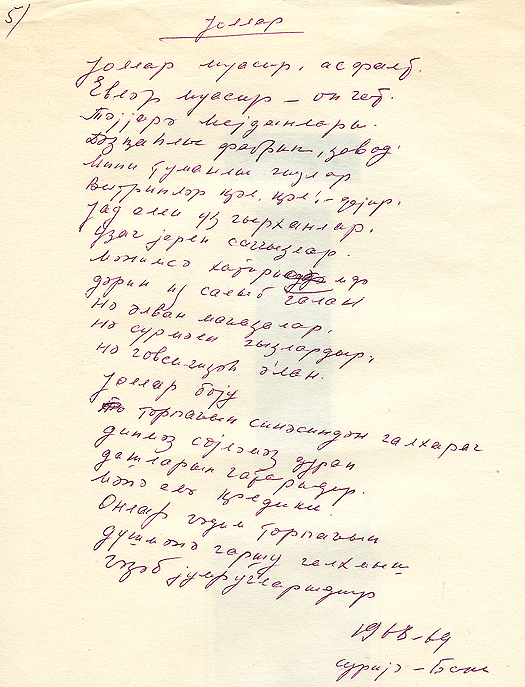 5)
Јоллар
Јоллар муасир, асфалт.
Евләр муасир – он гат.
Тәјјарә мејданлары.
Дәзҝаһлы фабрик, завод.
Мини туманлы гызлар
Витринләр ҝәл, ҝәл! – дејир.
Јад елли үз гырханлар,
узаг јерли саггызлар.
Мәнимсә хатиримдә
дәрин из салыб галан
Нә әлван мағазалар,
нә сүрмәли гызлардыр,
нә говси-гүзәһ олан.
Јоллар боју
торпағын синәсиндән галхараг
динмәз сөјләмәз дуран
дашларын гатарыдыр.
Мәнә елә ҝәлди ки
Онлар гәдим торпағын
душмәнә гаршы галхмыш
гәзәб јумругларыдыр
1968-69
сурија – Бакы